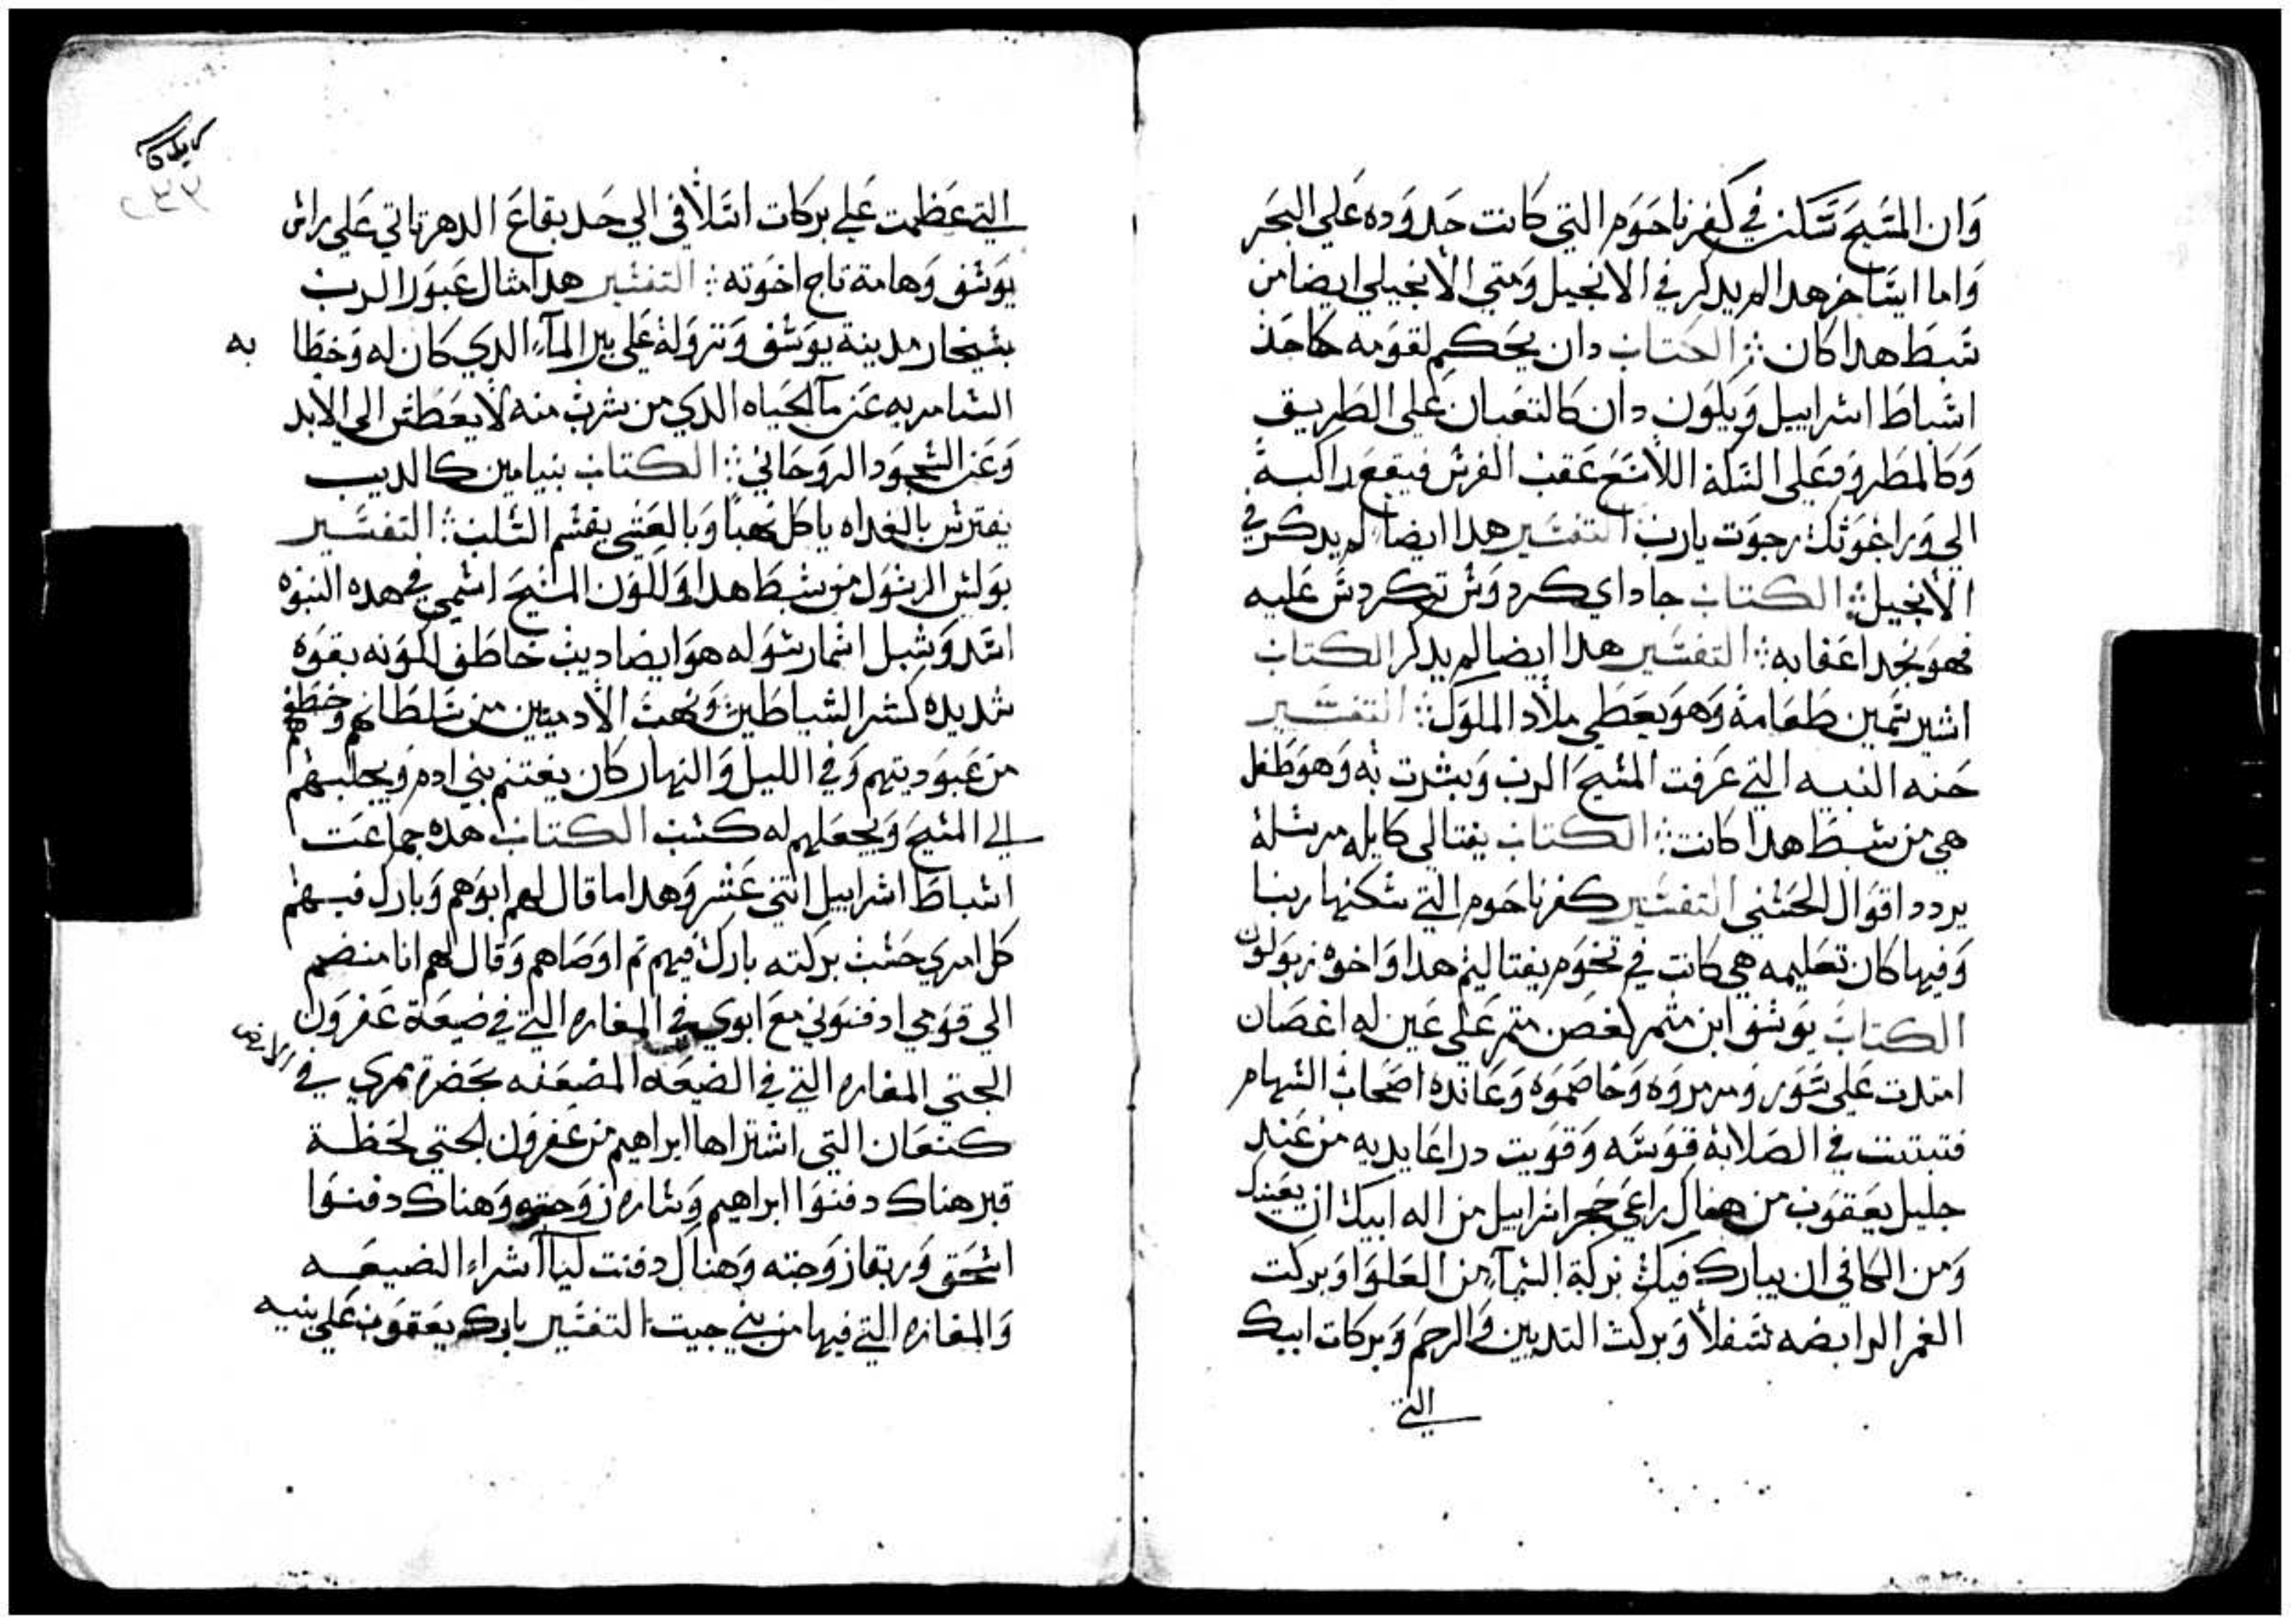 وان المسيح سكن في كفرناحوم التي كانت حدوده علي البحر
واما ايساخر هدا لم يدكر في الانجيل ومتي الانجيلي ايضا من
سبط هدا كان الكتاب دان يحكم لقومه كاحد
اسباط اسراييل ويكون دان كالتعبان علي الطريق
وكالمطروق علي السكة اللاسع عقب الفرس فيقع راكبة
الي ورا غوثك رجوت يارب التفسير هدا ايضا لم يدكر في
الانجيل الكتاب جاد اي كردوس تكردس عليه
فهو نجد اعقابه التفسير هدا ايضا لم يدكر الكتاب
اشير سمين طعامة وهو يعطي ملاد الملوك التفسير
حنه النبيه التي عرفت المسيح الرب وبشرت به وهو طفل
هي من سبط هدا كانت الكتاب يفتالي كايله مرسلة
يردد اقوال الحسني التفسير كفرناحوم التي سكنها ربنا
وفيها كان تعليمه هي كانت في تخوم يفتاليم هدا واخوه زبولون
الكتاب يوسف ابن متمر لغصن متمر علي عين له اغصان
امتدت علي سور ومرمروه وخاصموه وعانده اصحاب السهام
فتبتت في الصلابة قوسه وقويت دراعا يديه من عند
جليل يعقوب من هناك راعي حجر اسراييل من اله ابيك ان يعينك
ومن الكافي ان يبارك فيك بركة السمآء من العلوا وبركت
الغمر الرابضه سفلا وبركت التديين والرحم وبركات ابيك
التي
التي عظمت علي بركات اسلافي الي حد بقاع الدهر تاتي علي راس
يوسف وهامة تاج اخوته التفسير هدا متال عبور الرب
بشيخار مدينة يوسف ونزولة علي بير المآء الدي كان له وخطا به
السامريه عن مآ الحياه الدي من شرب منه لا يعطش الي الابد
وعن السجود الروحاني الكتاب بنيامين كالديب
يفترس بالغداه ياكل نهبا وبالعشي يقسم السلب التفسير
بولس الرسول من سبط هدا ولكون المسيح اسمي في هده النبوه
اسد وشبل اسمار سوله هو ايضا ديب خاطف لكونه بقوه
شديده كسر الشياطين ونهب الادميين من سلطانهم وخطفهم
من عبوديتهم وفي الليل والنهار كان يغتنم بني ادم ويجلبهم
الي المسيح ويجعلهم له كسب الكتاب هده جماعت
اسباط اسراييل اتني عشر وهدا ما قال لهم ابوهم وبارك فيهم
كل امري حسب بركته بارك فيهم تم اوصاهم وقال لهم انا منضم
الي قومي ادفنوني مع ابوي في المغاره التي في ضيعة عفرون
الحتي المغاره التي في الضيعه المضعفه بحضرة ممري في الارض
كنعان التي اشتراها ابراهيم من عفرون الحتي لحظة
قبر هناك دفنوا ابراهيم وساره زوجته وهناك دفنوا
اسحق وربقا زوجته وهناك دفنت ليا اشراء الضيعه
والمغاره التي فيها من بني حيت التفسير بارك يعقوب علي بنيه